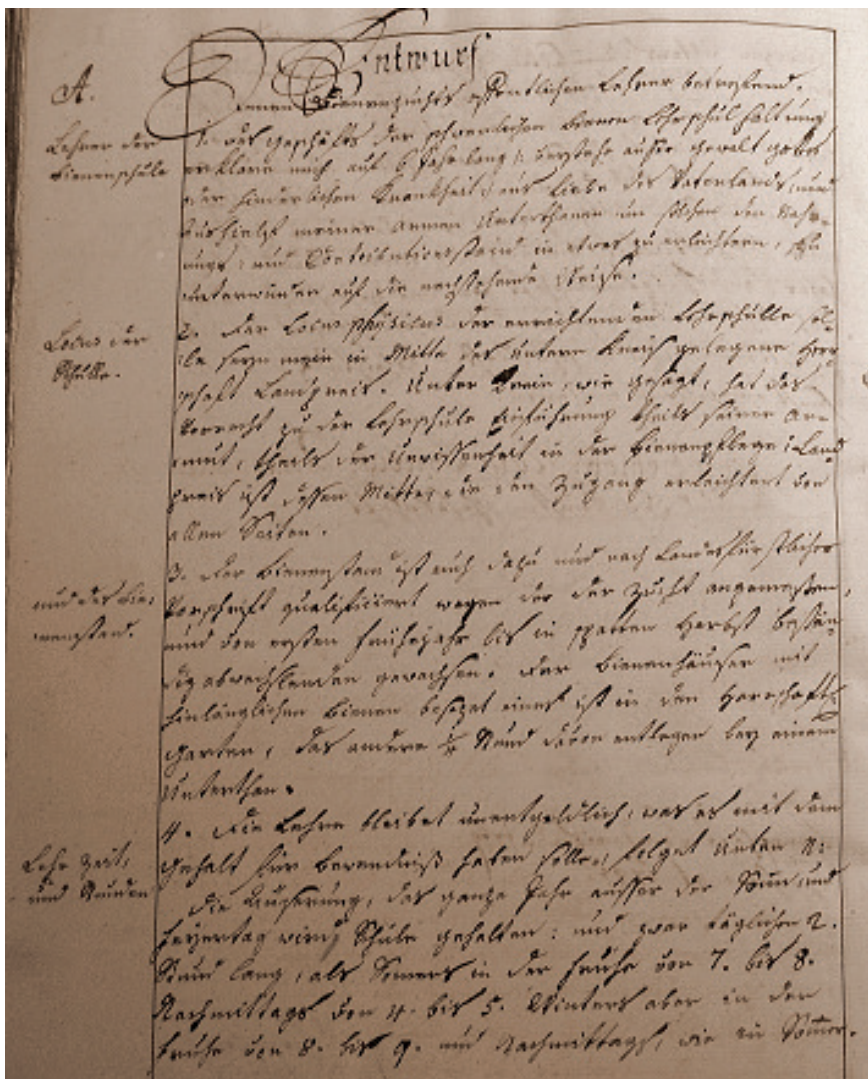 Entwurf
A.
Einen Bienenzuchts öffentlichen Lehrer betreffend.
Lehrer der
Bienenschule
1. das geschäft der schwerlichen bienen Lehrschul haltung
erkläre mich auf 6 Jahr lang /: verstehe ausser gewalt gottes
oder hinderlichen Krankheit :/ aus liebe des Vatterlands, und
meiner armen Unterthanen um solchen den Nahr¬
ungs: und Contributionsstand in etwas zu erleichtern, zu
unterwinden auf die nachstehende Weise.
Locus der
Schulle.
2. Der Locus physicus der errichtenden Lehrschulle sol¬
le seyn mein in Mitte des Untern gelegene Herr
schaft Landspreis. Unter Crain, wie gesagt, hat das
Vorrecht zu der Lehrschule Einführung theils seiner ar¬
muth, theils der Unwissenheit in der bienenpflege: Land
spreis ist dessen Mitte, die den Zugang erleichtert von
allen Seiten.
und des Bie¬
nenstand.
3. Der bienenstand ist auch dazu und nach Landsfürstlicher
Vorschrift qualificiert wegen der der Zucht angemessenen,
und von ersten Frühejahr bis in spatten Herbst bestän¬
dig abwechslenden gewachsen. Der bienenhäuser mit
hinlänglichen bienen besezt eines ist in den Herrschafts
garten, das andere ¼ Stund davon entlegen bey einem
Unterthan.
Lehr Zeit,
und Stunden
4. Die Lehre bleibet unentgeldlich, was es mit dem
gehalt für bewendniß haben solle, folget unten
die Äußerung, das ganze Jahr ausser der Sonn: und
feyertag wird Schule gehalten: und zwar täglichen 2.
Stund lang, als Somers in der Fruhe von 7. bis 8.
Nachmittags von 4. bis 5. Winters aber in der
Fruhe von 8. bis 9. und Nachmittags, wie in Somer.